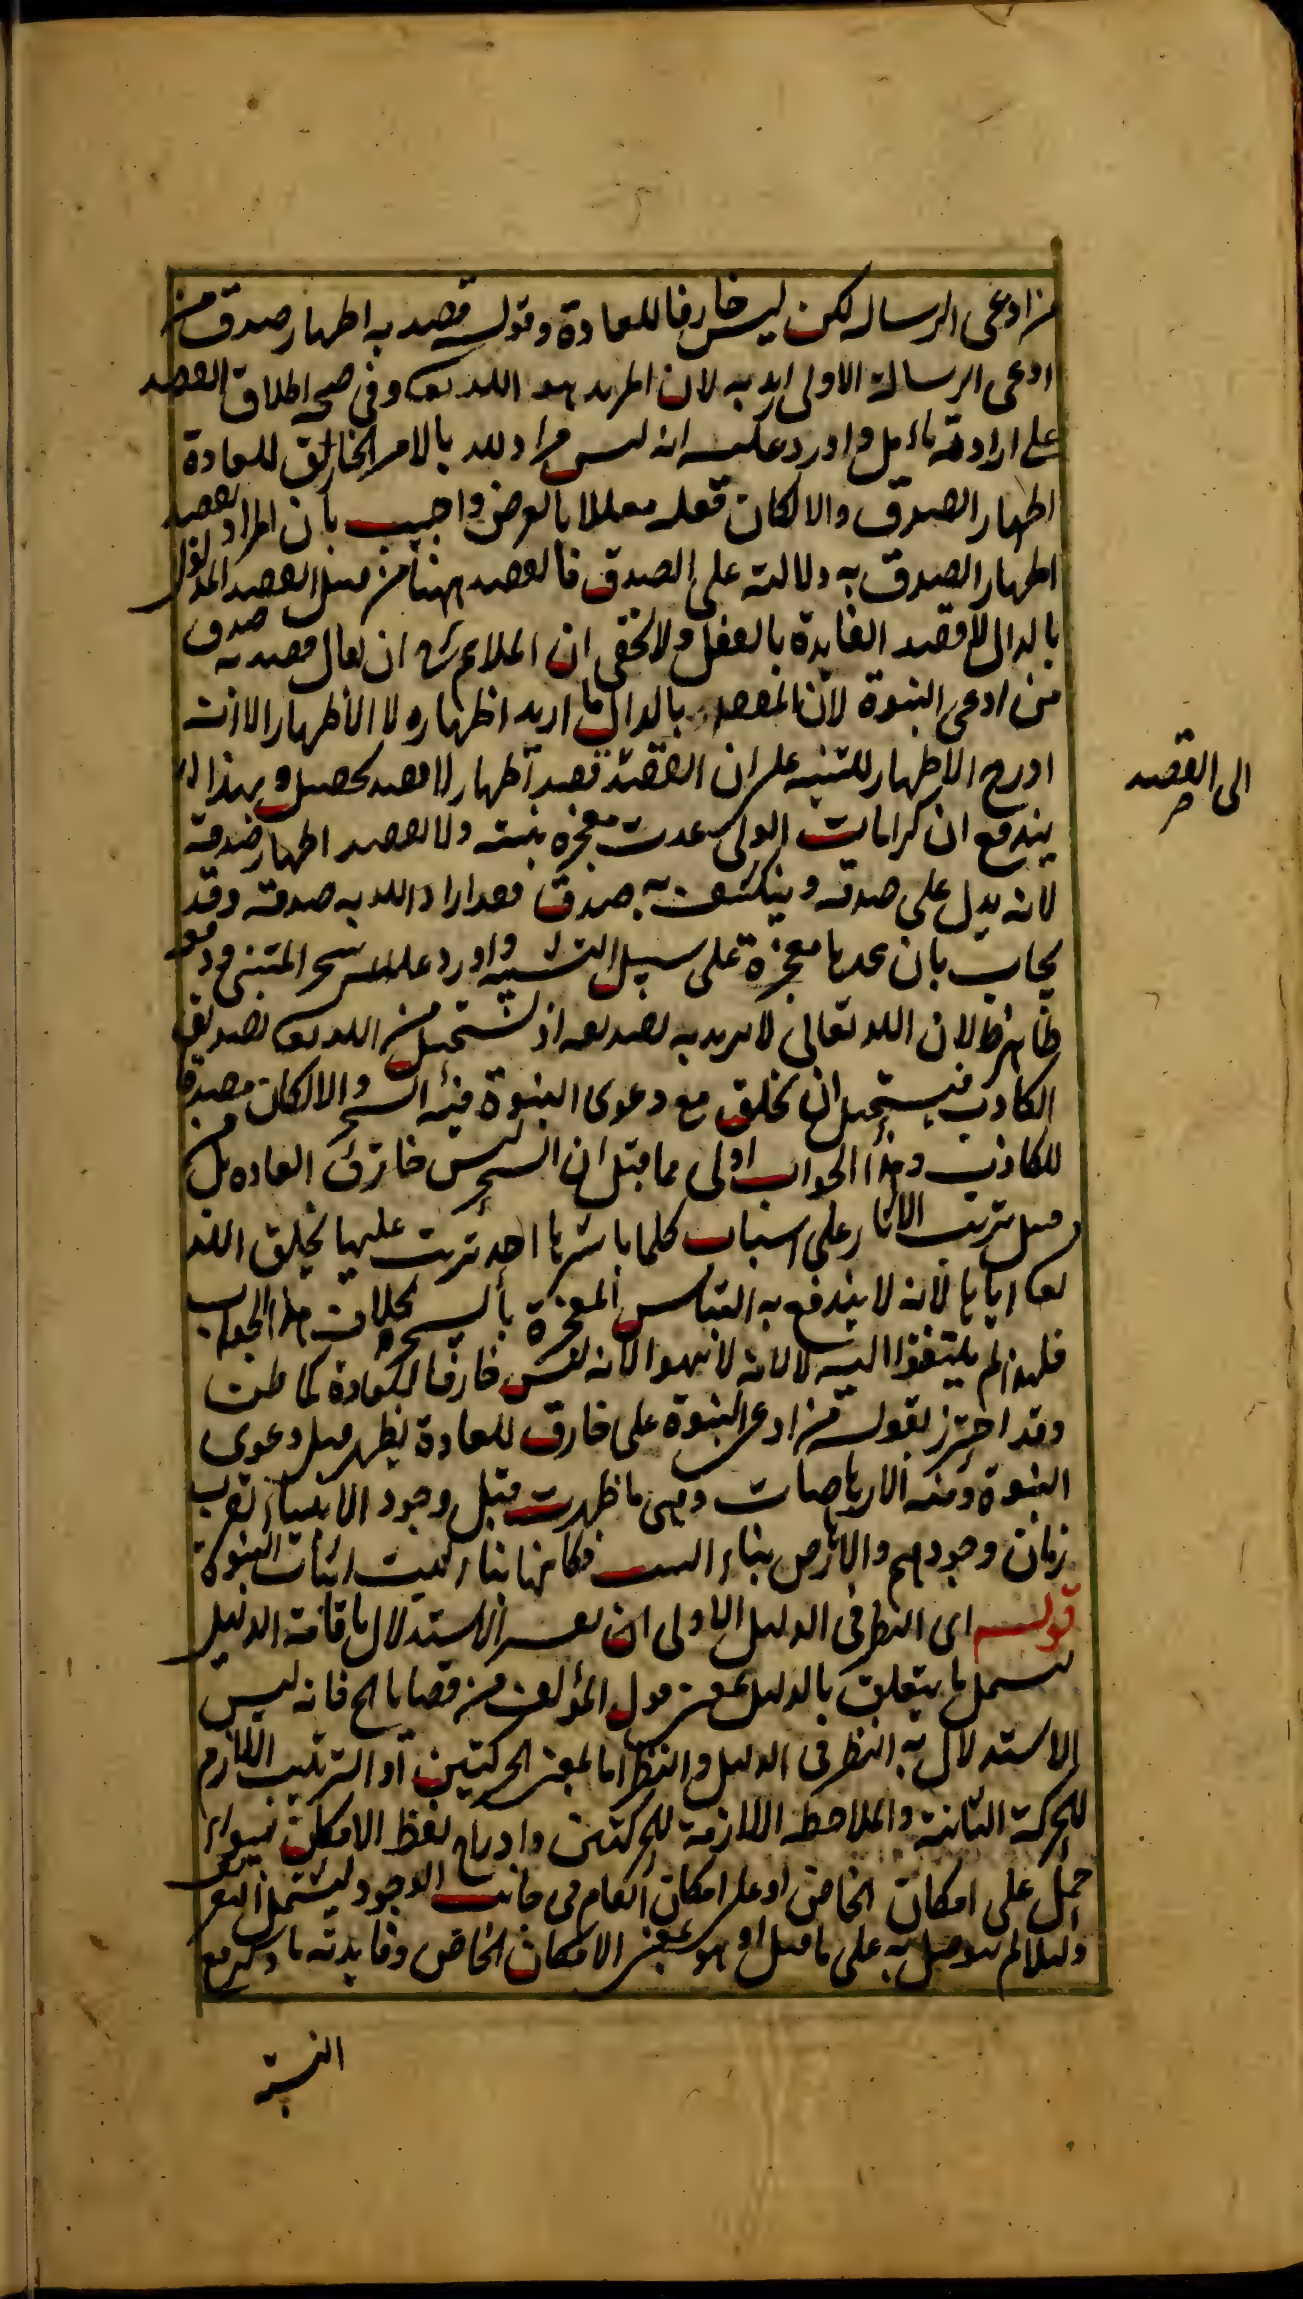 من ادعى الرسالة لكن ليس خارقا للعادة وقوله قصد به اظهار صدق من
ادعى الرسالة الاولى اريد به لان المريد هو الله تعـ وفي صحة اطلاق القصد
على ارادته تامل واورد عليه انه ليس مراد لله بالامر الخارق للعادة
اظهار الصدق والا لكان فعله معللا بالغرض واجيب بان المراد بقصد
اظهار الصدق به دلالته على الصدق فالقصد ههنا من قبيل القصد المدلول
بالدال لا قصد الفايدة بالفعل ولا يخفى ان الملايم ان يقال قصد به صدق
من ادعى النبوة لان المقصد بالدال ما اريد اظهاره لا الاظهار الا انه
ادرج الاظهار للتنبيه على ان القصد قصد اظهار لا قصد تحصيل وبهذا
الى القصد
يندفع ان كرامات الولى عدت معجزة نبيه ولا يقصد اظهار صدقه
لانه يدل على صدقه وينكشف به صدق فقد اراد الله به صدقه وقد
يجاب بان عدها معجزة على سبيل التشبيه واورد عليه سحر المتنبي ودفعه
ظاهر لان الله تعالى لا يريد به تصديقه اذ يستحيل من الله تعـ تصديق
الكاذب فيستحيل ان يخلق مع دعوى النبوة فيه السحر والا لكان مصدقا
للكاذب وهذا الجواب اولى مما قيل ان السحر ليس خارق العادة بل من
قبيل ترتب الاثار على اسباب كلما باشرها احد ترتب عليها بخلق الله
تعـ اياها لانه لا يندفع به التباس المعجزة بالسحر بخلاف هذا الجواب
فلهذا لم يلتفتوا اليه لا لانه لا يهوا لانه ليس خارقا للعادة كما ظن
وقد احترز بقوله من ادعى النبوة على خارق للعادة يظهر قبل دعوى
النبوة ومنه الارهاصات وهى ما ظهرت قبل وجود الانبياء بقرب
زمان وجودهم والارهاص بناء البيت فكانها بناء بيت اثبات النبوة
قوله اى النظر في الدليل الاولى ان يفسر الاستدلال باقامة الدليل
ليشمل ما يتعلق بالدليل بمعنى قول المؤلف من قضايا الح فانه ليس
الاستدلال به النظر في الدليل والنظر اما بمعنى الحركتين او الترتيب اللازم
للحركة الثانية والملاحظة اللازمة للحركتين وادراج لفظ الامكان سواء
حمل على امكان الخاص او على امكان العام في جانب الوجود ليشمل التعريف
دليلا لم يتوصل به على ما قيل او هو بمعنى الامكان الخاص وفايدته ما ذكر مع
النسبة